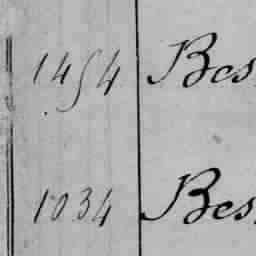 1454 Bes
1034 Bes